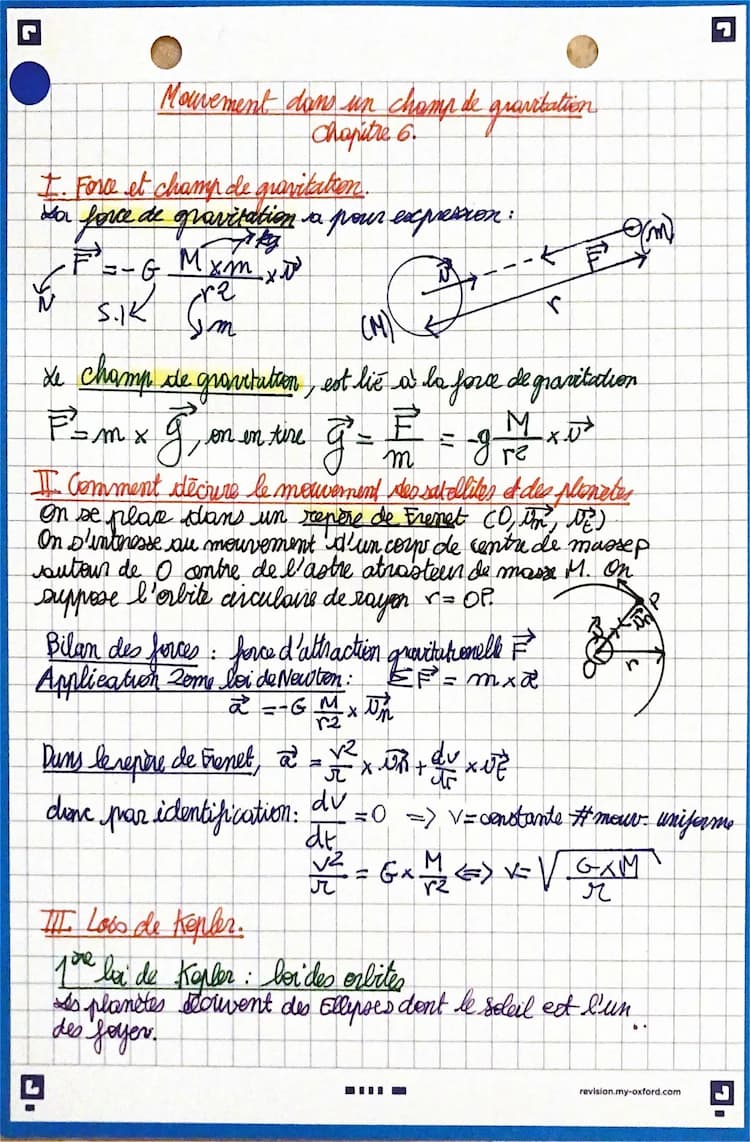 Mouvement dans un champ de gravitation
Chapitre 6.
I. Force et champ de gravitation.
La force de gravitation a pour expression :
F = - G M x m / r2 x U
N
S.I
kg
m
(M)
U
F
(m)
r
Le champ de gravitation, est lié à la force de gravitation
F = m x g, on en tire g = F / m = -g M / r2 x U
II. Comment décrire le mouvement des satellites et des planetes
On se place dans un repère de Frenet (O, Un, Ut)
On s'intéresse au mouvement d'un corps de centre de masse P
autour de O centre de l'astre attracteur de masse M. On
suppose l'orbite circulaire de rayon r = OP.
P
O
r
Bilan des forces : force d'attraction gravitationelle F
Application 2eme loi de Newton : ΣF = m x a
a = - G M / r2 x Un
Dans le repère de Frenet, a = v2 / r x Un + dv / dt x Ut
donc par identification : dv / dt = 0 => v = constante # mouv. uniforme
v2 / r = G x M / r2 <=> v = √ G x M / r
III. Lois de Kepler.
1ère loi de Kepler : loi des orbites
Les planètes décrivent des Ellipses dont le soleil est l'un
des foyer.
revision.my-oxford.com